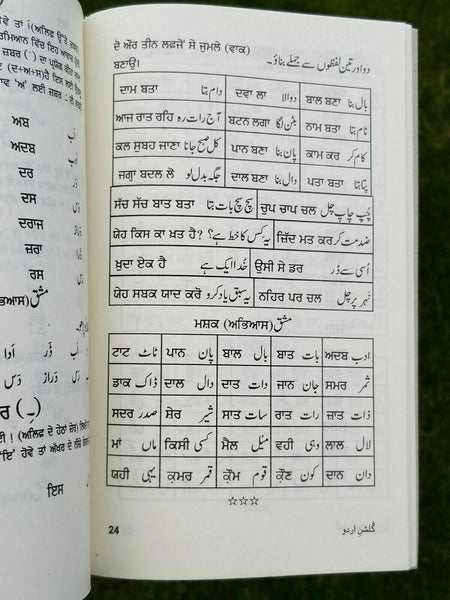 ਦੋ ਔਰ ਤੀਨ ਲਫ਼ਜ਼ੋਂ ਸੇ ਜੁਮਲੇ (ਵਾਕ)
ਬਣਾਓ। دو اور تین لفظوں سے جملے بناؤ۔
ਦਾਮ ਬਤਾ دام بتا ਦਵਾ ਲਾ دوا لا ਬਾਲ ਬਣਾ بال بنا
ਆਜ ਰਾਤ ਰਹਿ آج رات رہ ਬਟਨ ਲਗਾ بٹن لگا ਨਾਮ ਬਤਾ نام بتا
ਕਲ ਸੁਬਹ ਜਾਣਾ کل صبح جانا ਪਾਨ ਬਣਾ پان بنا ਕਾਮ ਕਰ کام کر
ਜਗ੍ਹਾ ਬਦਲ ਲੋ جگہ بدل لو ਦਾਲ ਬਣਾ دال بنا ਪਤਾ ਬਤਾ پتا بتا
ਸੱਚ ਸੱਚ ਬਾਤ ਬਤਾ سچ سچ بات بتا ਚੁਪ ਚਾਪ ਚਲ چُپ چاپ چل
ਯੇਹ ਕਿਸ ਕਾ ਖ਼ਤ ਹੈ? یہ کِس کا خط ہے؟ ਜ਼ਿੱਦ ਮਤ ਕਰ ضد مت کر
ਖ਼ੁਦਾ ਏਕ ਹੈ خُدا ایک ہے ਉਸੀ ਸੇ ਡਰ اُسی سے ڈر
ਯੇਹ ਸਬਕ ਯਾਦ ਕਰੋ یہ سبق یاد کرو ਨਹਿਰ ਪਰ ਚਲ نہر پر چل
ਮਸ਼ਕ (ਅਭਿਆਸ) مشق
ਟਾਟ ٹاٹ ਪਾਨ پان ਬਾਲ بال ਬਾਤ بات ਅਦਬ ادب
ਡਾਕ ڈاک ਦਾਲ دال ਦਾਤ دات ਜਾਨ جان ਸਮਰ ثمر
ਸਦਰ صدر ਸ਼ੇਰ شیر ਸਾਤ سات ਰਾਤ رات ਜ਼ਾਤ ذات
ਮਾਂ ماں ਕਿਸੀ کسی ਮੈਲ میل ਵਹੀ وہی ਲਾਲ لال
ਯਹੀ یہی ਕ਼ਮਰ قمر ਕ਼ੌਮ قوم ਕੌਣ کون ਦਾਨ دان
☆☆☆
24 گلشن اردو
ਅਬ
ਅਦਬ
ਦਰ
ਦਸ
ਦਰਾਜ਼
ਜ਼ਰਾ
ਰਸ
مشق (ਅਭਿਆਸ)
ਇਸ